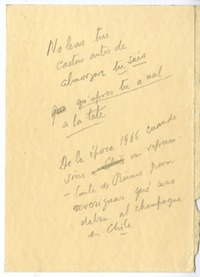 No leas tus
cartas antes de
almorzar tu sais
qu'après tu a mal
a la tête
De la época 1966 cuando
vino un reparan
- Conte de Reims para
averiguar qué uso
daban al champagne
en Chile